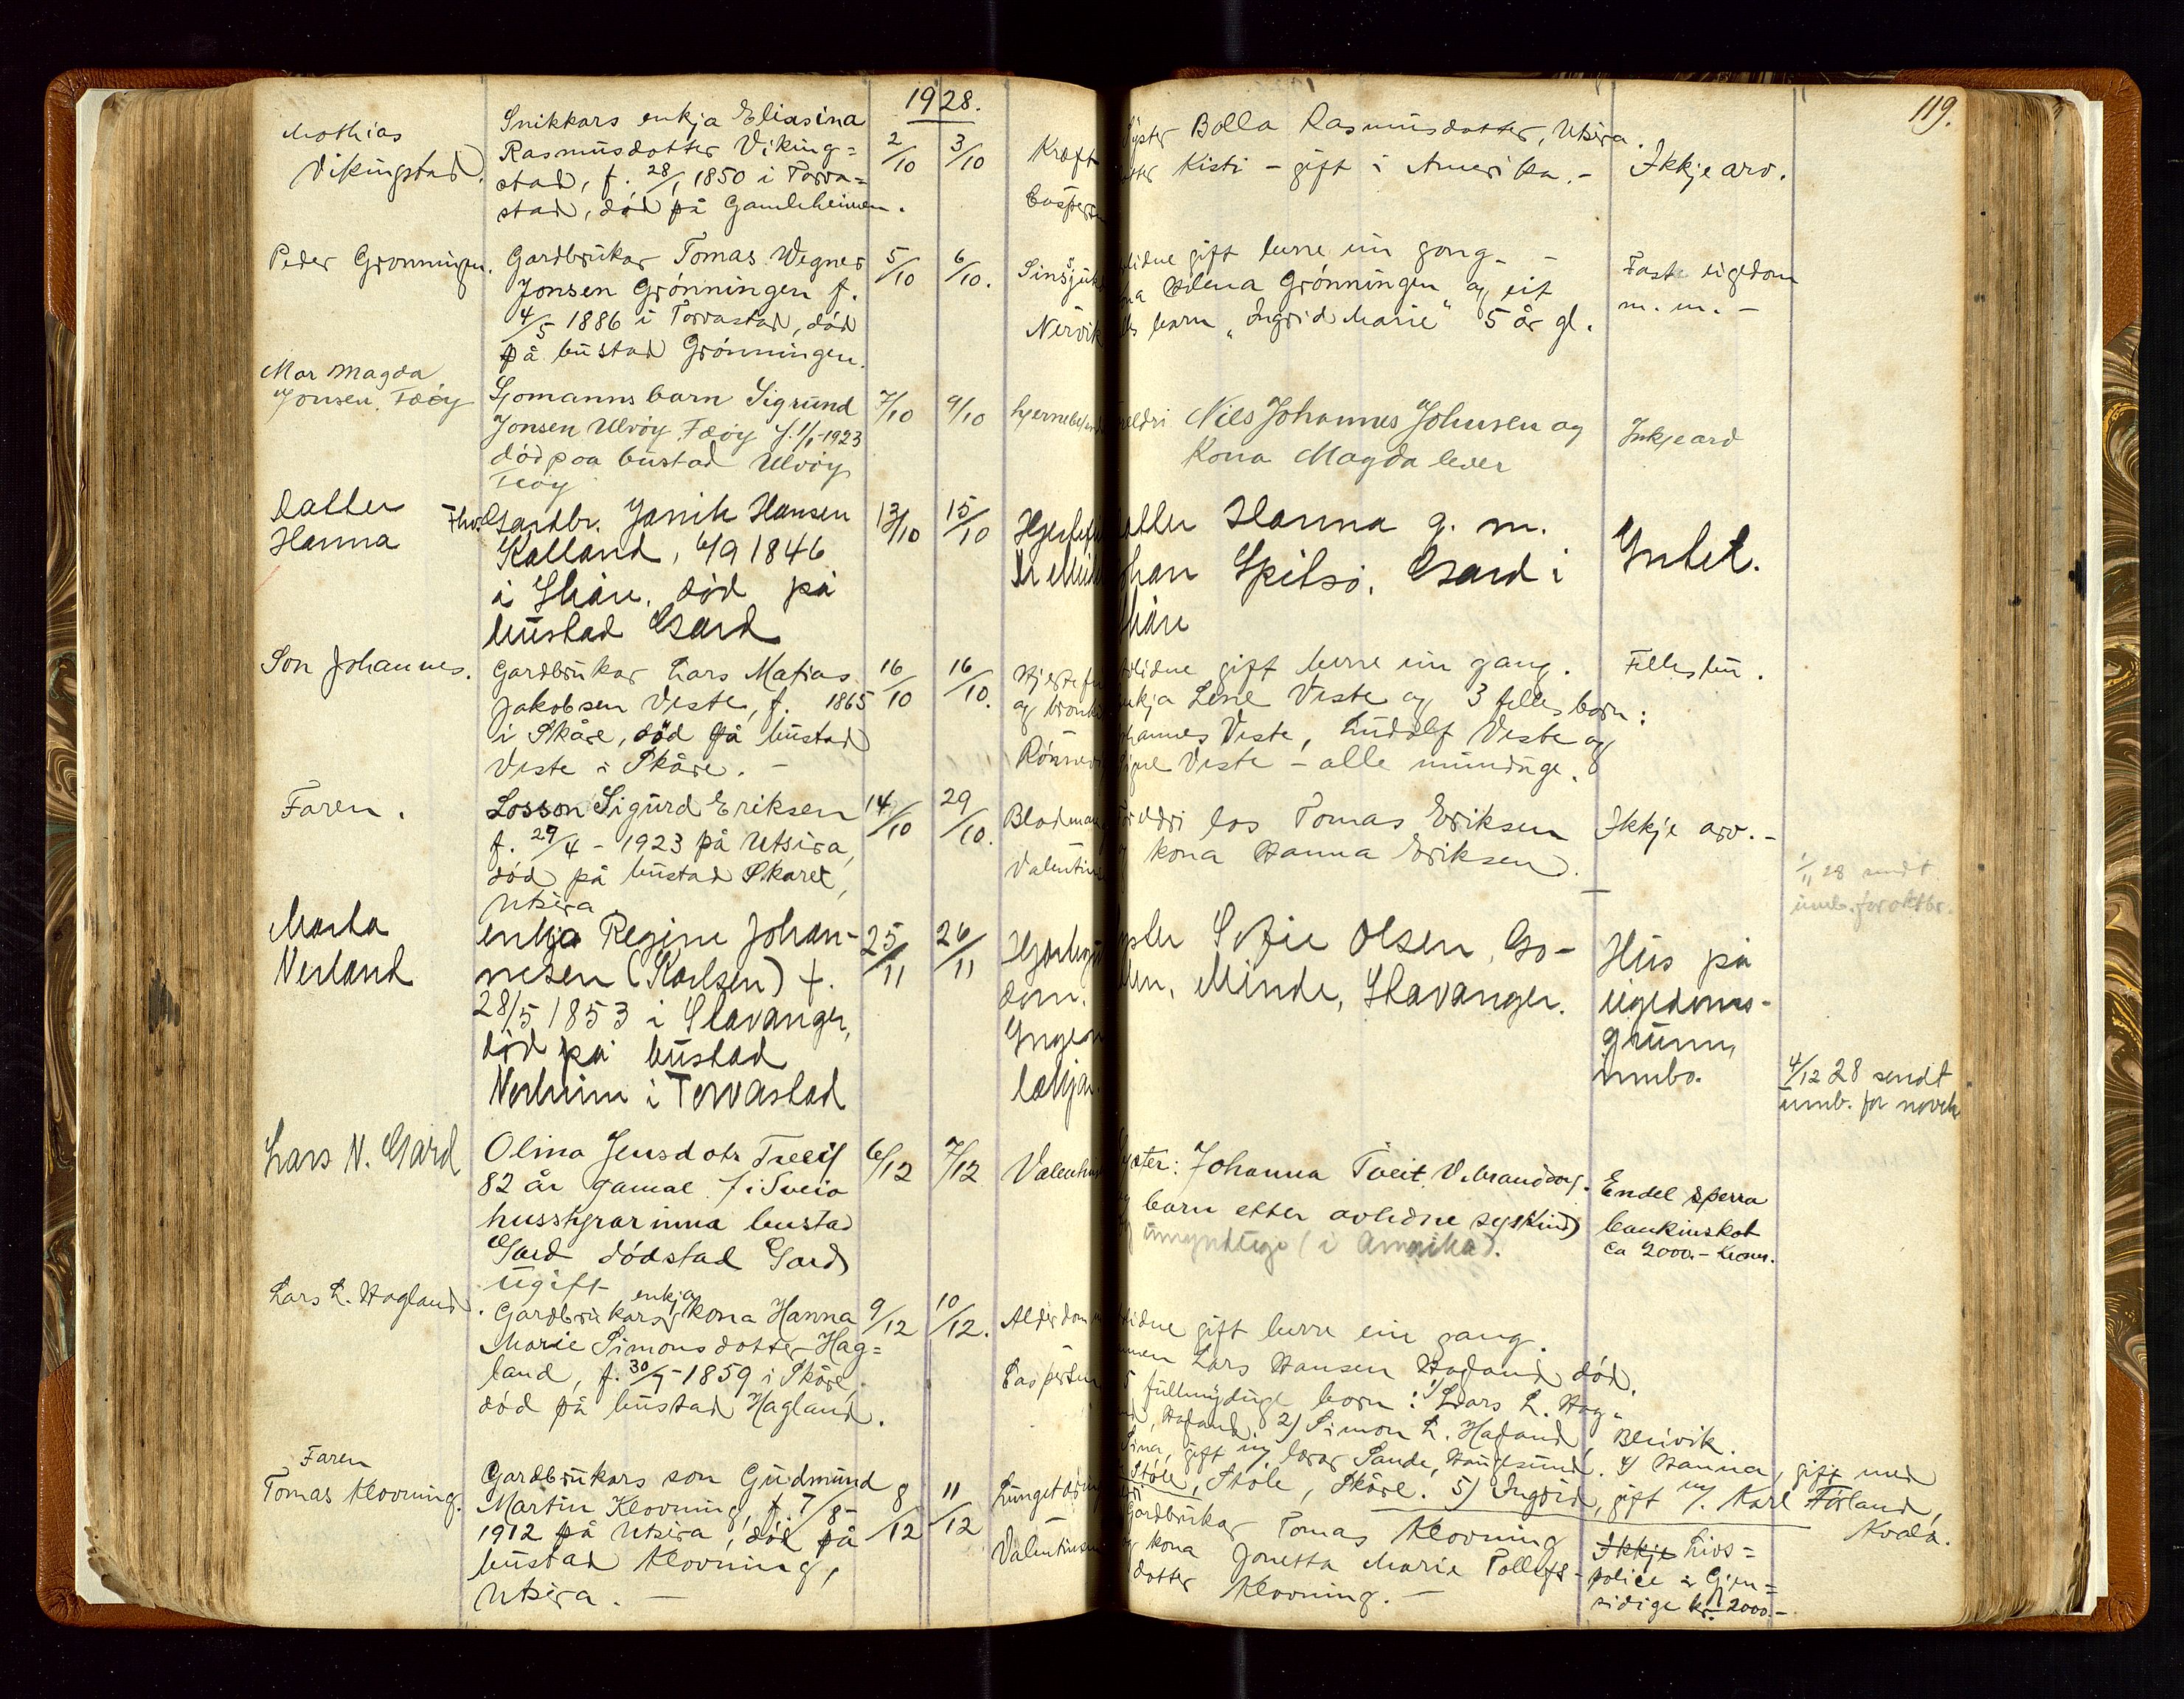 1928.
119.
Mathias
Vikingstad.
Snikkars enkja Eliasina
Rasmusdotter Viking=
stad, f. 28/1 1850 i Torva=
stad, död på Gamleheimen.
2/10
3/10
Kræft
Syster Bolla Rasmusdotter, Utsira.
Kisti - gift i Amerika. -
Ikkje arv.
Peder Grønningen.
Gardbrukar Tomas Wegner
Jonsen Grønningen f.
4/5 1886 i Torvastad, död
på bustad Grønningen.
5/10
6/10.
Sinssjuk
Nervik
gift berre ein gong. -
Grønningen og eit
barn "Ingrid Marie" 5 år gl.
Faste eigedom
m. m. -
Mor Magda
Jonsen. Fæøy
Sjomanns barn Sigrund
Jonsen Ulvøy Fæøy f. 1/1-1923
död paa bustad Ulvøy
Fæøy
7/10
9/10
Nils Johannes Johnsen og
Kona Magda lever
Inkje arv
Datter
Hanna
Fhv. Gardbr. Jonik Hansen
Kalland, 6/9 1846
i Skåre, død på
bustad Gard
13/10
15/10
Hanna g. m.
Spilsö, Gard i
Skåre
Intet.
Son Johannes.
Gardbrukar Lars Matias
Jakobsen Veste, f. 1865
i Skåre, död på bustad
Veste i Skåre. -
16/10
16/10.
Hjertefe
og bronki
gift berre ein gang.
Lene Veste og 3 felles born:
Veste, Ludolf Veste og
Veste - alle mundige.
Fellesbu.
Faren.
Losson Sigurd Eriksen
f. 29/4 - 1923 på Utsira,
död på bustad Skaret,
Utsira
14/10
29/10.
Blodmang
Valentins
Foreldri los Tomas Eriksen
kona Hanna Eriksen.
Ikkje arv. -
1/11 28 sendt
umb. for oktbr.
Marta
Nerland
enkja Regine Johan-
nesen (Karlsen) f.
28/5 1853 i Stavanger,
død på bustad
Norheim i Torvastad
25/11
26/11
dom.
Ingen
lækjar.
Sofie Olsen, Go-
Minde, Stavanger.
Hus på
eigedoms-
grunn,
innbo.
4/12 28 sendt
umb. for novbr
Lars N. Gard
Olina Jensdotr Tveit
82 år gamal f i Sveio
husstyrarinna bustad
Gard dödstad Gard
ugift
6/12
7/12
Valentins
Syster: Johanna Tveit, V.
barn etter avlidne syskind
umyndige (i Amerika).
Endel sperra
bankinskot
Ca 2000.- kroner.
Lars L. Hagland.
enkja
Gardbrukars kona Hanna
Marie Simonsdotter Hag=
land, f. 30/7-1859 i Skåre,
död på bustad Hagland.
9/12
10/12.
Alderdom
gift berre ein gang.
Lars Hansen Hagland död.
5 fullmyndige born: 1) Lars L. Hag-
Hagland 2) Simon L. Hagland, Bleivik.
gift m/ lærar Sande, Haugesund. 4) Hanna, gift med
Støle, Støle, Skåre. 5) Ingrid, gift m/. Karl Førland,
Kvala.
Faren
Tomas Klovning.
Gardbrukars son Gudmund
Martin Klovning, f. 7/8-
1912 på Utsira, död på
bustad Klovning,
Utsira. -
8/12
11/12
Valentinsen
Gardbrukar Tomas Klovning
og kona Jonetta Marie Tollefs-
dotter Klovning. -
Ikkje Livs=
police i Gjen=
sidige kr. 2000.-